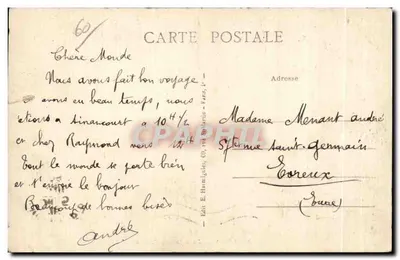 60
CARTE POSTALE
Chère Monde
Nous avons fait bon voyage
avons eu beau temps, nous
étions a Linancourt a 10 H 1/2
et chez Raymond vers 12 H
Tout le monde se porte bien
et t'envoie le bonjour
Beaucoup de bonnes bises
André
Adresse
Madame Menant andré
Saint-Germain
Evreux
(Eure)